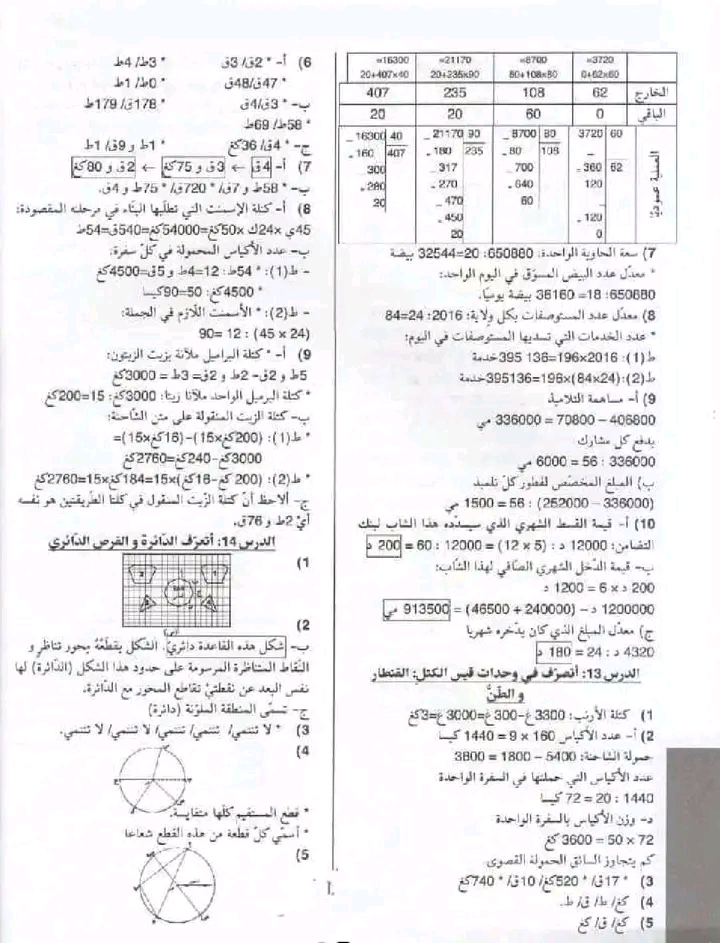 3720= 8700= 21170= 16300=
0+62×60 60+108×80 20+235×90 20+407×40
الخارج 62 108 235 407
الباقي 0 60 20 20
العملية عموديا
3720 60 8700 80 21170 90 16300 40
- 360 62 - 80 108 - 180 235 - 160 407
120 700 317 300
- 120 - 640 - 270 - 280
0 60 470 20
- 450
20
7) سعة الحاوية الواحدة: 650880: 20=32544 بيضة
* معدّل عدد البيض المسوّق في اليوم الواحد:
650880: 18= 36160 بيضة يوميّا.
8) معدل عدد المستوصفات بكل ولاية: 2016: 24=84
* عدد الخدمات التي تسديها المستوصفات في اليوم:
ط(1): 2016×196=136 395 خدمة
ط(2): (24×84)×196=395136خدمة
9) أ- مساهمة التلاميذ
406800 – 70800 = 336000 مي
يدفع كل مشارك
336000 : 56 = 6000 مي
ب) المبلغ المخصّص لفطور كلّ تلميذ
(336000 – 252000) : 56 = 1500 مي
10) أ- قيمة القسط الشهري الذي سيسدّده هذا الشاب لبنك
التضامن: 12000 د : (5 × 12) = 12000 : 60 = 200 د
ب- قيمة الدّخل الشهري الصّافي لهذا الشّاب:
200 د × 6 = 1200 د
1200000 د – (240000 + 46500) = 913500 مي
ج) معدّل المبلغ الذي كان يدّخره شهريا
4320 د : 24 = 180 د
الدرس 13: أتصرّف في وحدات قيس الكتل: القنطار
و الطنّ
1) كتلة الأرنب: 3300 غ-300 غ=3000غ=3كغ
2) أ- عدد الأكياس 160 × 9 = 1440 كيسا
حمولة الشاحنة: 5400 – 1800 = 3800
عدد الأكياس التي حملتها في السفرة الواحدة
1440 : 20 = 72 كيسا
د- وزن الأكياس بالسفرة الواحدة
72 × 50 = 3600 كغ
كم يتجاوز السائق الحمولة القصوى
3) * 17ق/ * 520كغ/ 10ق/ * 740كغ
4) كغ/ ط/ ق/ ط.
5) كغ/ ق/ كغ
6) أ- * 2ق/ 3ق * 3ط/ 4ط
* 47ق/48ق * 0ط/ 1ط
ب- * 3ق/4ق * 178ق/ 179ط
* 58ط/ 69ط
ج- * 4ق/ 36كغ * 1ط و 9ق/ 1ط
7) أ- 4ق ← 3ق و 75كغ ← 2ق و 80كغ
ب- * 58ط و 7ق/ * 720ق/ * 75ط و 4ق.
8) أ- كتلة الإسمنت التي تطلّبها البنّاء في مرحلته المقصودة:
45ي ×24ك ×50كغ=54000كغ=540ق=54ط
ب- عدد الأكياس المحمولة في كلّ سفرة:
- ط(1): * 54ط: 12=4ط و 5ق=4500كغ
* 4500كغ: 50=90كيسا
- ط(2): * الأسمنت اللّازم في الجملة:
(24 × 45) : 12 =90
9) أ- * كتلة البراميل ملآنة بزيت الزيتون:
5ط و 2ق- 2ط و 2ق= 3ط = 3000كغ
* كتلة البرميل الواحد ملآنا زيتا: 3000كغ: 15=200كغ
ب- كتلة الزيت المنقولة على متن الشاحنة:
* ط(1): (200كغ×15)–(16كغ×15)=
3000كغ-240كغ=2760كغ
* ط(2): (200 كغ–16كغ)×15=184كغ×15=2760كغ
ج- ألاحظ أنّ كتلة الزّيت المنقول في كلتا الطّريقتين هو نفسه
أيْ 2ط و 76ق.
الدرس 14: أتعرّف الدّائرة و القرص الدّائري
1)
2)
ب- شكل هذه القاعدة دائريّ. الشكل يقطعُهُ محور تناظر و
النّقاط المتناظرة المرسومة على حدود هذا الشكل (الدّائرة) لها
نفس البعد عن نقطتيْ تقاطع المحور مع الدّائرة.
ج- تسمّى المنطقة الملوّنة (دائرة)
3) * لا تنتمي/ تنتمي/ تنتمي/ لا تنتمي/ لا تنتمي.
4)
* قطع المستقيم كلّها متقايسة.
* أسمّي كلّ قطعة من هذه القطع شعاعا
5)